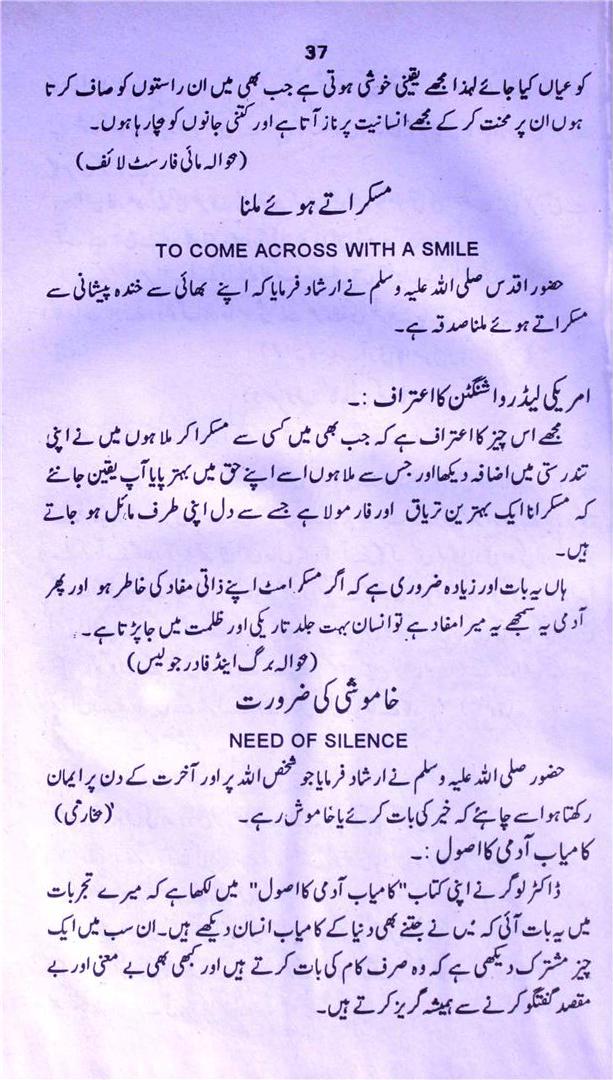 37
کو عیاں کیا جائے لہذا مجھے یقینی خوشی ہوتی ہے جب بھی میں ان راستوں کو صاف کرتا
ہوں ان پر محنت کر کے مجھے انسانیت پر ناز آتا ہے اور کتنی جانوں کو بچا رہا ہوں۔
(بحوالہ مائی فارسٹ لائف)
مسکراتے ہوئے ملنا
TO COME ACROSS WITH A SMILE
حضور اقدس صلی اللہ علیہ وسلم نے ارشاد فرمایا کہ اپنے بھائی سے خندہ پیشانی سے
مسکراتے ہوئے ملنا صدقہ ہے۔
امریکی لیڈر واشنگٹن کا اعتراف :۔
مجھے اس چیز کا اعتراف ہے کہ جب بھی میں کسی سے مسکرا کر ملا ہوں میں نے اپنی
تندرستی میں اضافہ دیکھا اور جس سے ملا ہوں اسے اپنے حق میں بہتر پایا آپ یقین جانئے
کہ مسکرانا ایک بہترین تریاق اور فارمولا ہے جسے سے دل اپنی طرف مائل ہو جاتے
ہیں۔
ہاں یہ بات اور زیادہ ضروری ہے کہ اگر مسکراہٹ اپنے ذاتی مفاد کی خاطر ہو اور پھر
آدمی یہ سمجھے یہ میرا مفاد ہے تو انسان بہت جلد تاریکی اور ظلمت میں جا پڑتا ہے۔
(بحوالہ برگ اینڈ فادر جولیس)
خاموشی کی ضرورت
NEED OF SILENCE
حضور صلی اللہ علیہ وسلم نے ارشاد فرمایا جو شخص اللہ پر اور آخرت کے دن پر ایمان
رکھتا ہو اسے چاہئے کہ خیر کی بات کرے یا خاموش رہے۔ (بخاری)
کامیاب آدمی کا اصول :۔
ڈاکٹر لوگر نے اپنی کتاب "کامیاب آدمی کا اصول" میں لکھا ہے کہ میرے تجربات
میں یہ بات آئی کہ میں نے جتنے بھی دنیا کے کامیاب انسان دیکھے ہیں۔ ان سب میں ایک
چیز مشترک دیکھی ہے کہ وہ صرف کام کی بات کرتے ہیں اور کبھی بھی بے معنی اور بے
مقصد گفتگو کرنے سے ہمیشہ گریز کرتے ہیں۔